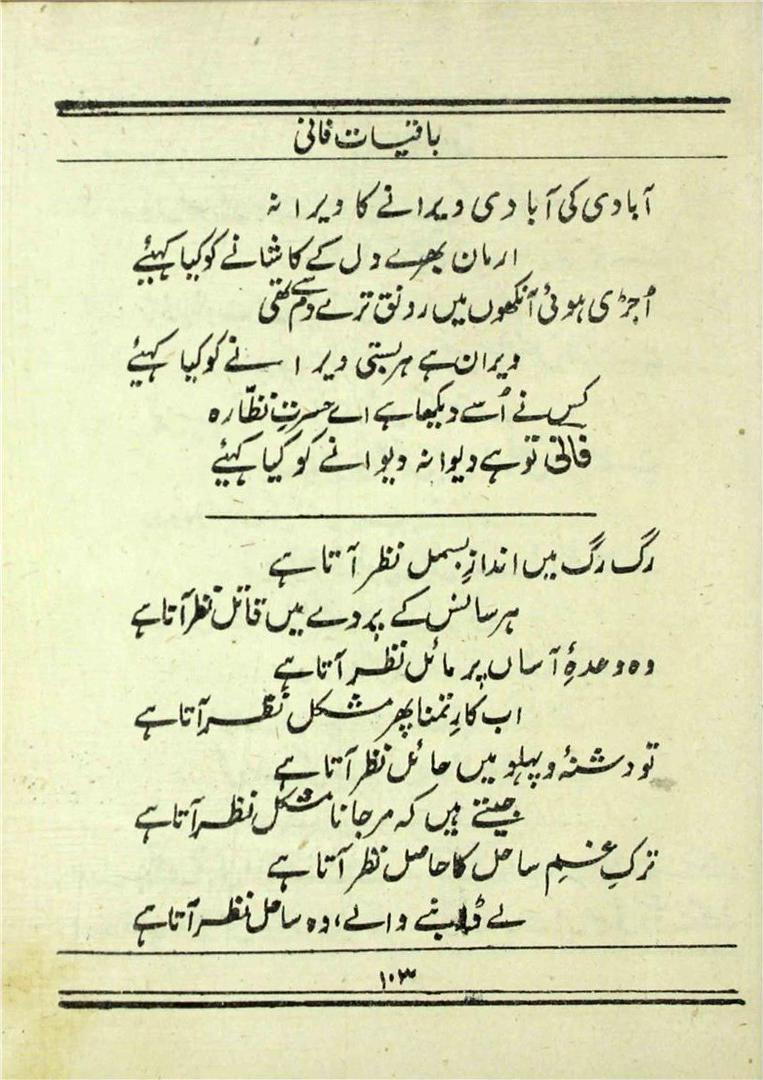 باقیات فانی
آبادی کی آبادی ویرانے کا ویرانہ
ارمان بھرے دل کے کاشانے کو کیا کہئیے
اُجڑی ہوئی آنکھوں میں رونق ترے دم سے تھی
ویران ہے ہر بستی ویرانے کو کیا کہئیے
کس نے اُسے دیکھا ہے اے حسرتِ نظّارہ
فانی تو ہے دیوانہ دیوانے کو کیا کہئیے
رگ رگ میں اندازِ بسمل نظر آتا ہے
ہر سانس کے پردے میں قاتل نظر آتا ہے
وہ وعدۂ آساں پر مائل نظر آتا ہے
اب کارِ تمنا پھر مشکل نظر آتا ہے
تو دشنہ و پہلو میں حائل نظر آتا ہے
جیتے ہیں کہ مر جانا مشکل نظر آتا ہے
ترکِ غمِ ساحل کا حاصل نظر آتا ہے
لے ڈوبنے والے، وہ ساحل نظر آتا ہے
۱۰۳